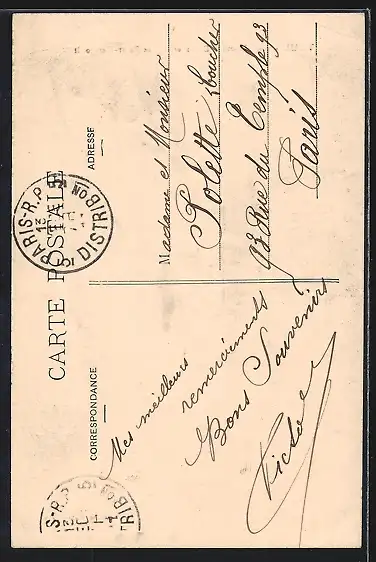 CARTE POSTALE
CORRESPONDANCE
ADRESSE
Mes meilleurs
remerciements
Bons Souvenirs
Victor
Madame et Monsieur
Polette, boucher
93 Rue du Temple 93
Paris
PARIS-R.P.
13
DISTRIBON
S-R.P
13
TRIBON